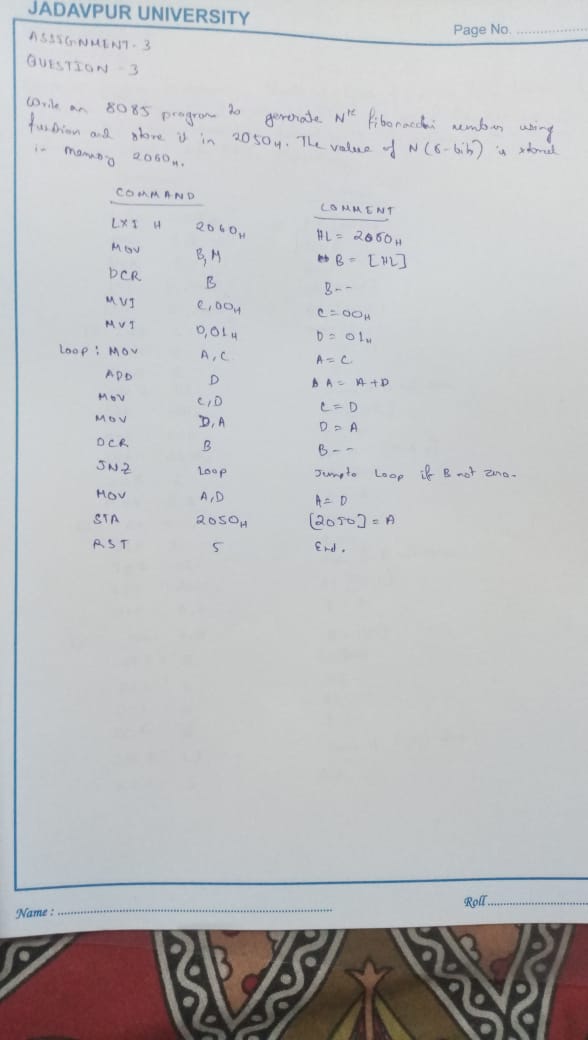 JADAVPUR UNIVERSITY
Page No. ..................
ASSIGNMENT - 3
QUESTION - 3
Write an 8085 program to generate Nth Fibonacci number using
function and store it in 2050H. The value of N (8-bit) is stored
in memory 2060H.
COMMAND COMMENT
LXI H 2060H HL = 2060H
MOV B, M B = [HL]
DCR B B--
MVI C, 00H C = 00H
MVI D, 01H D = 01H
Loop : MOV A, C A = C
ADD D A = A + D
MOV C, D C = D
MOV D, A D = A
DCR B B--
JNZ Loop Jump to Loop if B not zero.
MOV A, D A = D
STA 2050H [2050] = A
RST 5 End.
Name : ..................
Roll ..................